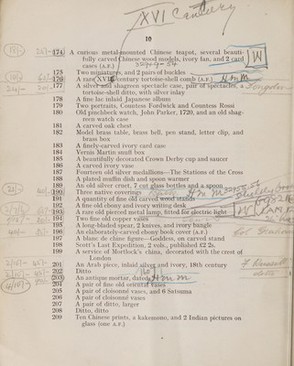 XVI Century
10
174 A curious metal-mounted Chinese teapot, several beauti-
fully carved Chinese wood models, ivory fan, and 2 card
cases (A.F.)
W
175 Two miniatures, and 2 pairs of buckles
176 A rare XVI century tortoise-shell comb (A.F.) H m M
177 A silver and shagreen spectacle case, pair of spectacles, a
tortoise-shell ditto, with silver inlay
178 A fine lac inlaid Japanese album
179 Two portraits, Countess Fordwick and Countess Rossi
180 Old pinchbeck watch, John Parker, 1720, and an old shag-
reen watch case
181 A carved oak chest
182 Model brass table, brass bell, pen stand, letter clip, and
brass box
183 A finely-carved ivory card case
184 Vernis Martin snuff box
185 A beautifully decorated Crown Derby cup and saucer
186 A carved ivory vase
187 Fourteen old silver medallions—The Stations of the Cross
188 A plated muffin dish and spoon warmer
189 An old silver cruet, 7 cut glass bottles and a spoon
190 Three native coverings
191 A quantity of fine old carved wood stands
192 A fine old ebony and ivory writing desk
193 A rare old pierced metal lamp, fitted for electric light
194 Two fine old copper vases
195 A long-bladed spear, 2 knives, and ivory bangle
196 An elaborately-carved ebony book cover (A.F.)
197 A blanc de chine figure—Goddess, on carved stand
198 Scott's Last Expedition, 2 vols., published £2 2s.
199 A service of Mortlock's china, decorated with the crest of
London
201 An Arab piece, inlaid silver and ivory, 18th century
202 Ditto
203 An antique mortar, dated H m M
204 A pair of fine old oriental vases
205 A pair of cloisonné vases, and 6 Satsuma
206 A pair of cloisonné vases
207 A pair of ditto, larger
208 Ditto, ditto
209 Ten Chinese prints, a kakemono, and 2 Indian pictures on
glass (one A.F.)